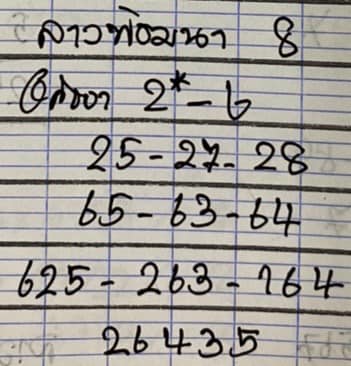 ลาวพัฒนา 8
2*-6
25-27-28
65-63-64
625-263-764
26435